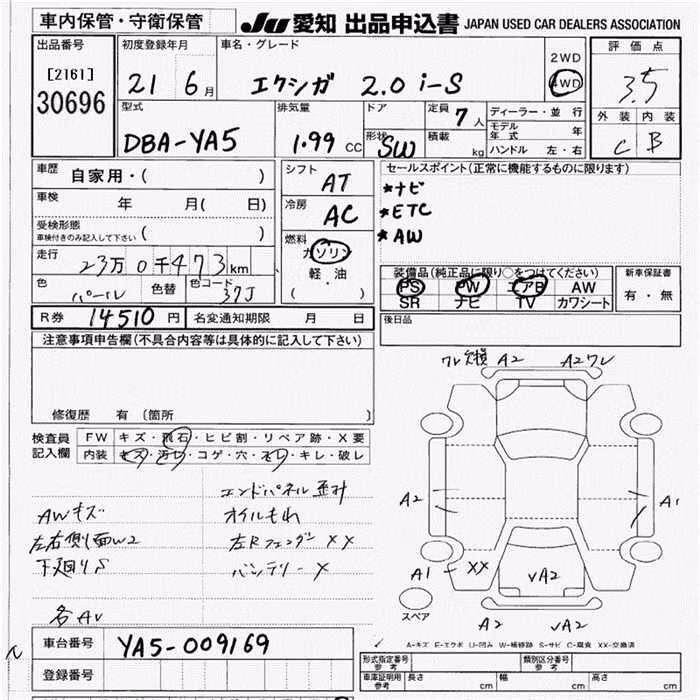 車内保管・守衛保管
JU 愛知 出品申込書 JAPAN USED CAR DEALERS ASSOCIATION
出品番号 初度登録年月 車名・グレード 評価点
[2161] 21 6月 エクシガ 2.0 i-S 2WD 4WD 3.5
30696
型式 排気量 ドア 定員 7人 ディーラー・並行 外装 内装
モデル年式 年
DBA-YA5 1.99 CC 形状 SW 積載 kg ハンドル 左・右 C B
車歴 自家用・( ) シフト AT セールスポイント(正常に機能するものに限ります)
車検 年 月( 日) 冷房 AC *ナビ
受検形態 ( ) *ETC
車検付きのみ記入して下さい
*AW
走行 23万0千473km 燃料 ガソリン
軽・油
( )
装備品(純正品に限り○をつけてください) 新車保証書
PS PW エアB AW 有・無
SR ナビ TV カワシート
色 パール 色替 色コード 37J
R券 14510円 名変通知期限 月 日 後日品
注意事項申告欄(不具合内容等は具体的に記入して下さい)
修復歴 有(箇所
検査員 FW キズ・飛石・ヒビ割・リペア跡・X要
記入欄 内装 キズ・汚レ・コゲ・穴・スレ・キレ・破レ
エンドパネル歪み
AWキズ オイルもれ
左右側面W2 左Rフェンダー XX
下廻りS バッテリーX
各AU
ワレ欠損 A2 A2ワレ
A2 A1
A1 XX VA2
スペア
A2 VA2
A-キズ E-エクボ U-凹み W-補修跡 S-サビ C-腐食 XX-交換済
車台番号 YA5-009169
登録番号
形式指定番号 参考 類別区分番号 参考
車庫証明用 参考 長さ cm 幅 cm 高さ cm